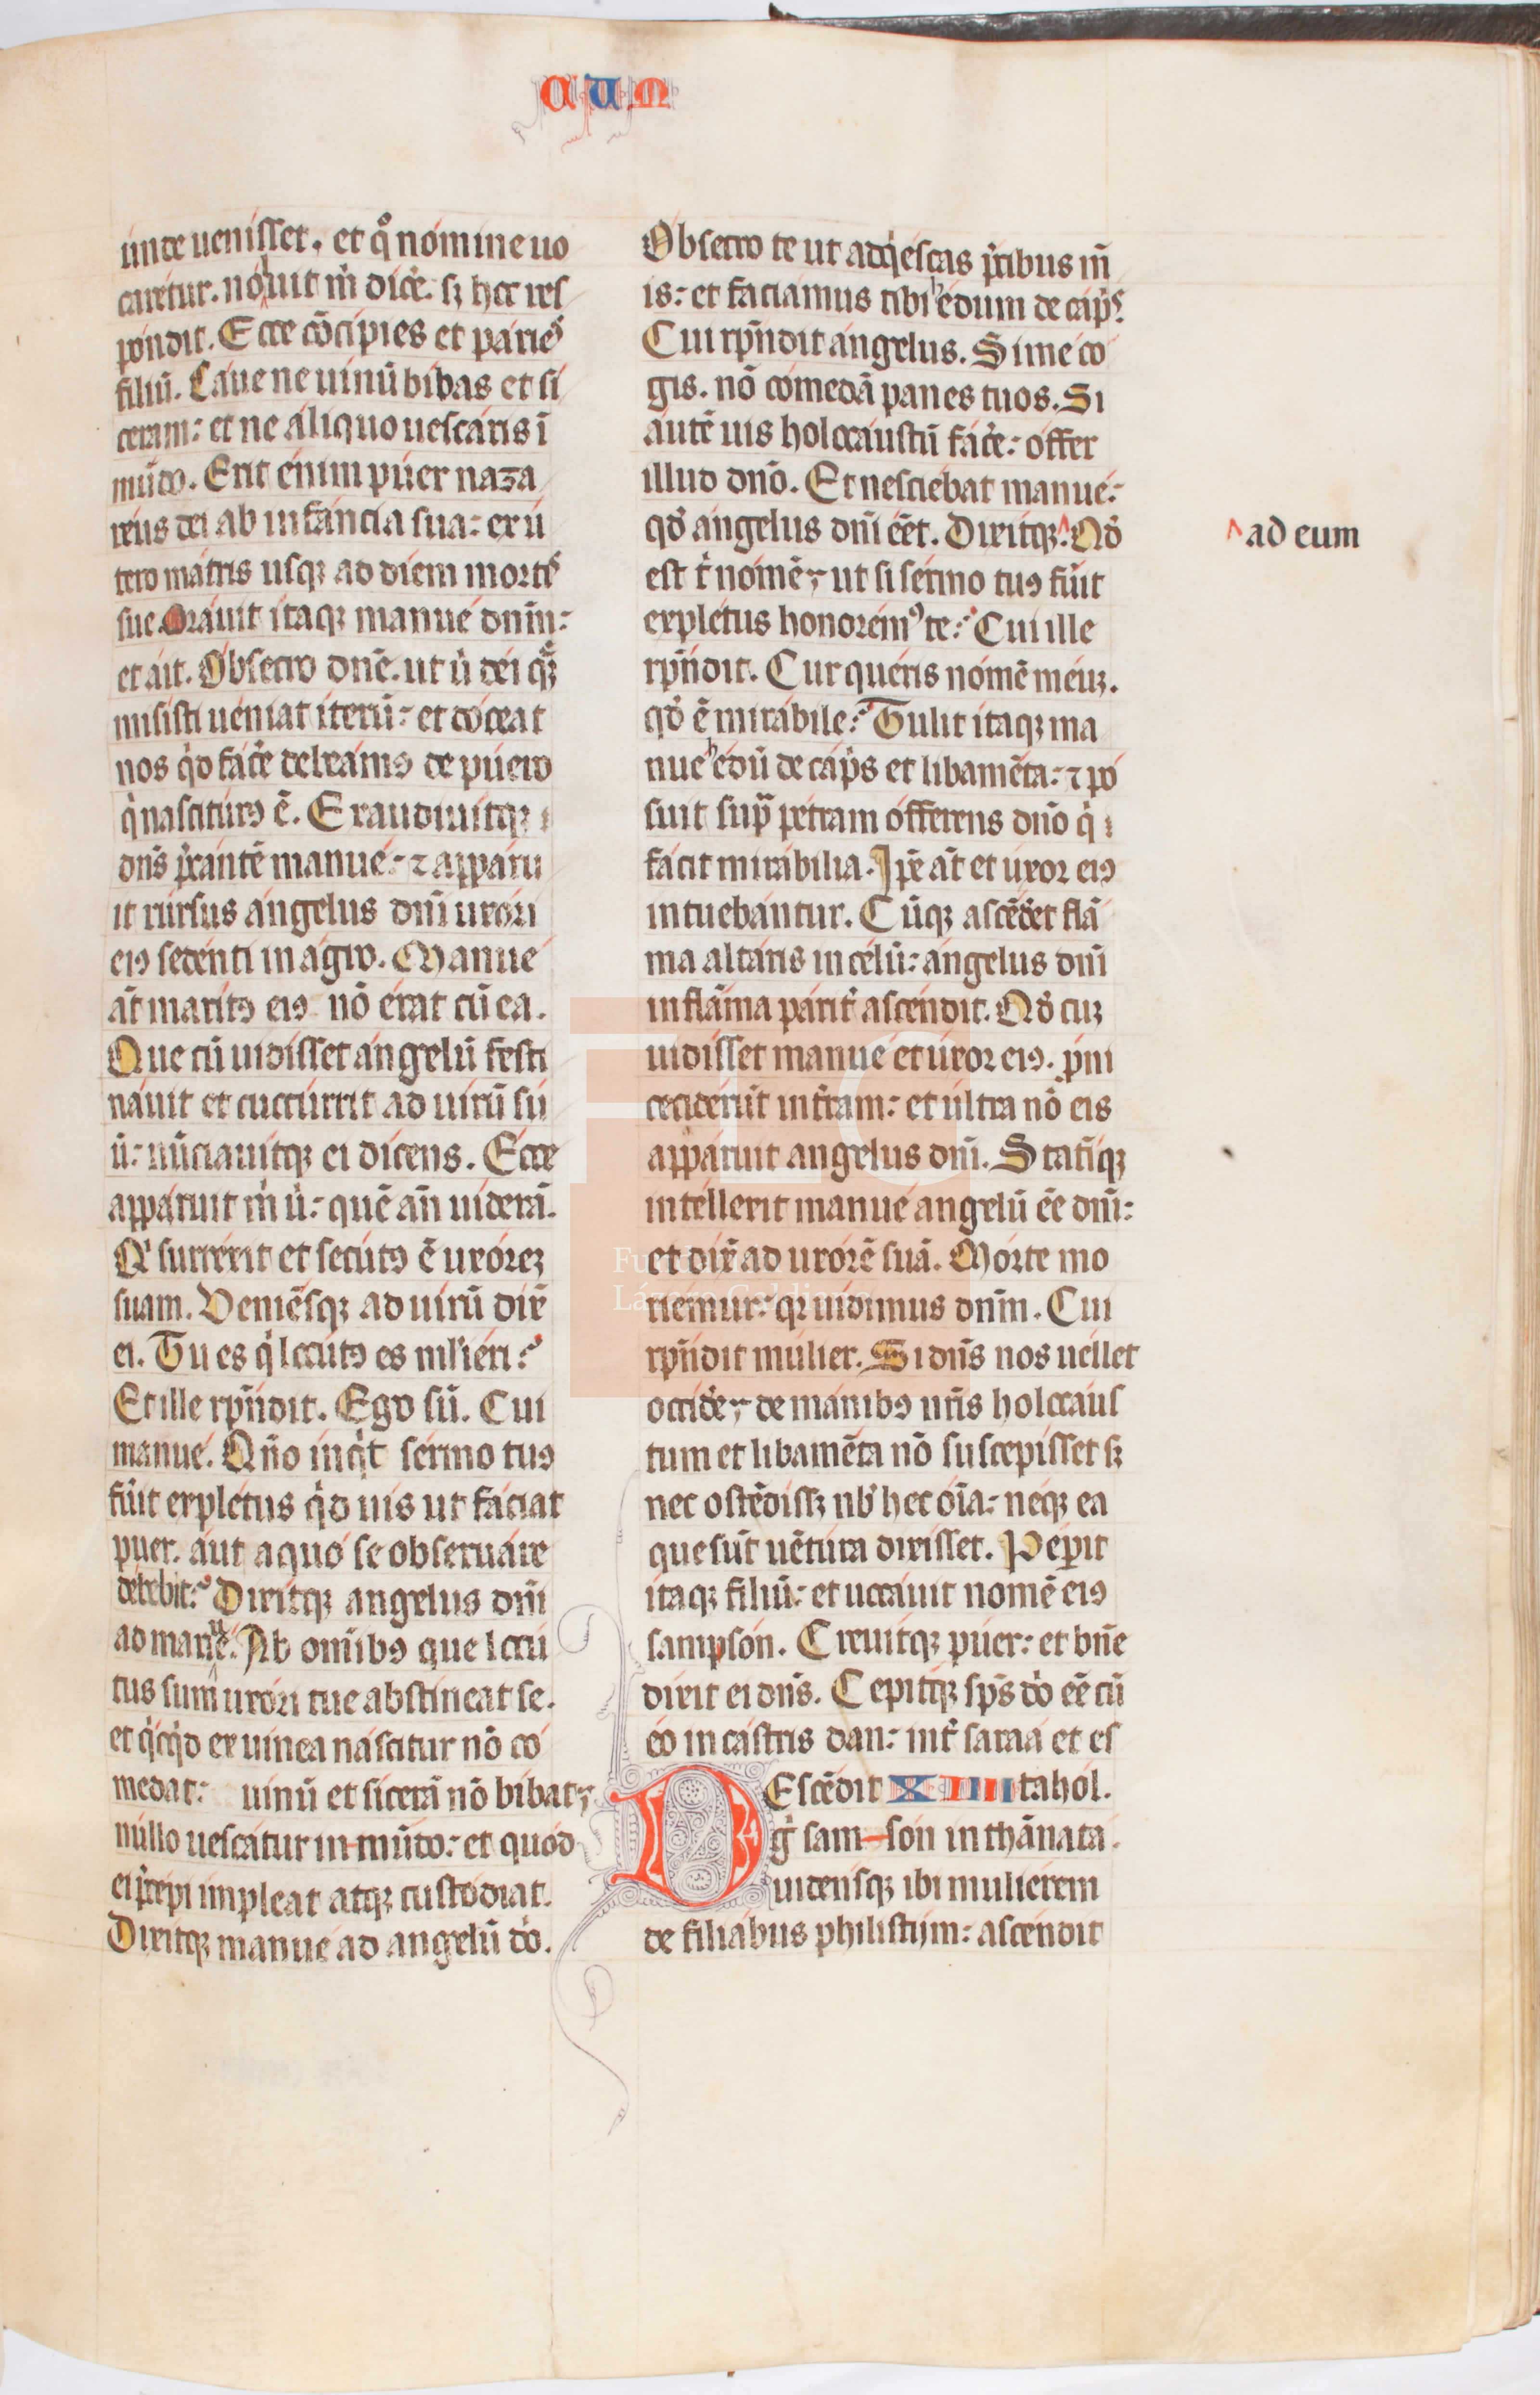 a u m
unde uenisset. et q̊ nomine uo
caretur. noluit m̄ dic̄e. sꝫ hec res
pondit. Ecce cōcipies et paries
filiū. Caue ne uinū bibas et si
ceram: et ne aliquo uescaris ī
mūdo. Erit enim puer naza
reus dei ab infancia sua: ex u
tero matris usqꝫ ad diem mortꝭ
sue. Orauit itaqꝫ manue dnm̄:
et ait. Obsecro dn̄e. ut ů dei quē
misisti ueniat iterū: et doceat
nos qͥd fac̄e debeamꝰ de puero
qͥ nasciturꝰ ē. Exaudiuitqꝫ
dn̄s p̄cantē manue: ⁊ apparu
it rursus angelus dn̄i uxori
eiꝰ sedenti in agro. Manue
at̄ maritꝰ eiꝰ nō erat cū ea.
Que cū uidisset angelū festi
nauit et cucurrit ad uirū su
ū: nūciauitqꝫ ei dicens. Ecce
apparuit m̄ ů: quē an̄ uiderā.
Qͥ surrexit et secutꝰ ē uxoreꝫ
suam. Veniēsqꝫ ad uirū dix̄
ei. Tu es qͥ locutꝰ es mlieri:
Et ille rp̄ndit. Ego sū. Cui
manue. Qn̄o inqͥt sermo tuꝰ
fūit expletus qͥd uis ut faciat
puer. aut a quo se obseruare
debebit: Dixitqꝫ angelus dn̄i
ad manue. Ab omībꝰ que locu
tus sum uxori tue abstineat se.
et qͥcqͥd ex uinea nascitur nō co
medat: uinū et sicerā nō bibat;
nullo uescatur in-mūdo: et quod
ei p̄cepi impleat atqꝫ custodiat.
Dixitqꝫ manue ad angelū dō.
Obsecro te ut adqͥescas p̄cibus m̄
is: et faciamus tibi hedum de capͥs.
Cui rp̄ndit angelus. Si me co
gis. nō comedā panes tuos. Si
autē uis holocaustū fac̄e: offer
illud dnō. Et nesciebat manue:
qd̄ angelus dn̄i ēet. Dixitqꝫ: Qd̄
est t̄ nomē; ut si sermo tuꝰ fūit
expletus honoremꝰ te: Cui ille
rp̄ndit. Cur queris nomē meuꝫ.
qd̄ ē mirabile: Tulit itaqꝫ ma
nue hedū de capͥs et libamēta: ⁊ po
suit sup̄ petram offerens dnō qͥ
facit mirabilia. Ip̄e at̄ et uxor eiꝰ
intuebantur. Cūqꝫ ascēdet flā
ma altaris in celū: angelus dn̄i
in flāma parit̄ ascendit. Qd̄ cuꝫ
uidisset manue et uxor eiꝰ. p̄ni
ceciderūt in t̄ram: et ultra nō eis
apparuit angelus dn̄i. Statīqꝫ
intellexit manue angelū ēe dn̄i:
et dix̄ ad uxorē suā. Morte mo
riemur: qꝛ uidimus dnm̄. Cui
rp̄ndit mulier. Si dn̄s nos uellet
occid̄e; de manibꝰ nr̄is holocaus
tum et libamēta nō suscepisset sꝫ
nec ostēdissꝫ nb̄ hec oīa: neqꝫ ea
que sūt uētura dixisset. Peperit
itaqꝫ filiū: et uocauit nomē eiꝰ
sampson. Creuitqꝫ puer: et bn̄e
dixit ei dn̄s. Cepitqꝫ sp̄s dō ēe cū
eo in castris dan: int̄ saraa et es
DEscēdit XIIII tahol.
gͥ sam-son in thānata.
uidensqꝫ ibi mulierem
de filiabus philistijm: ascendit
ad eum